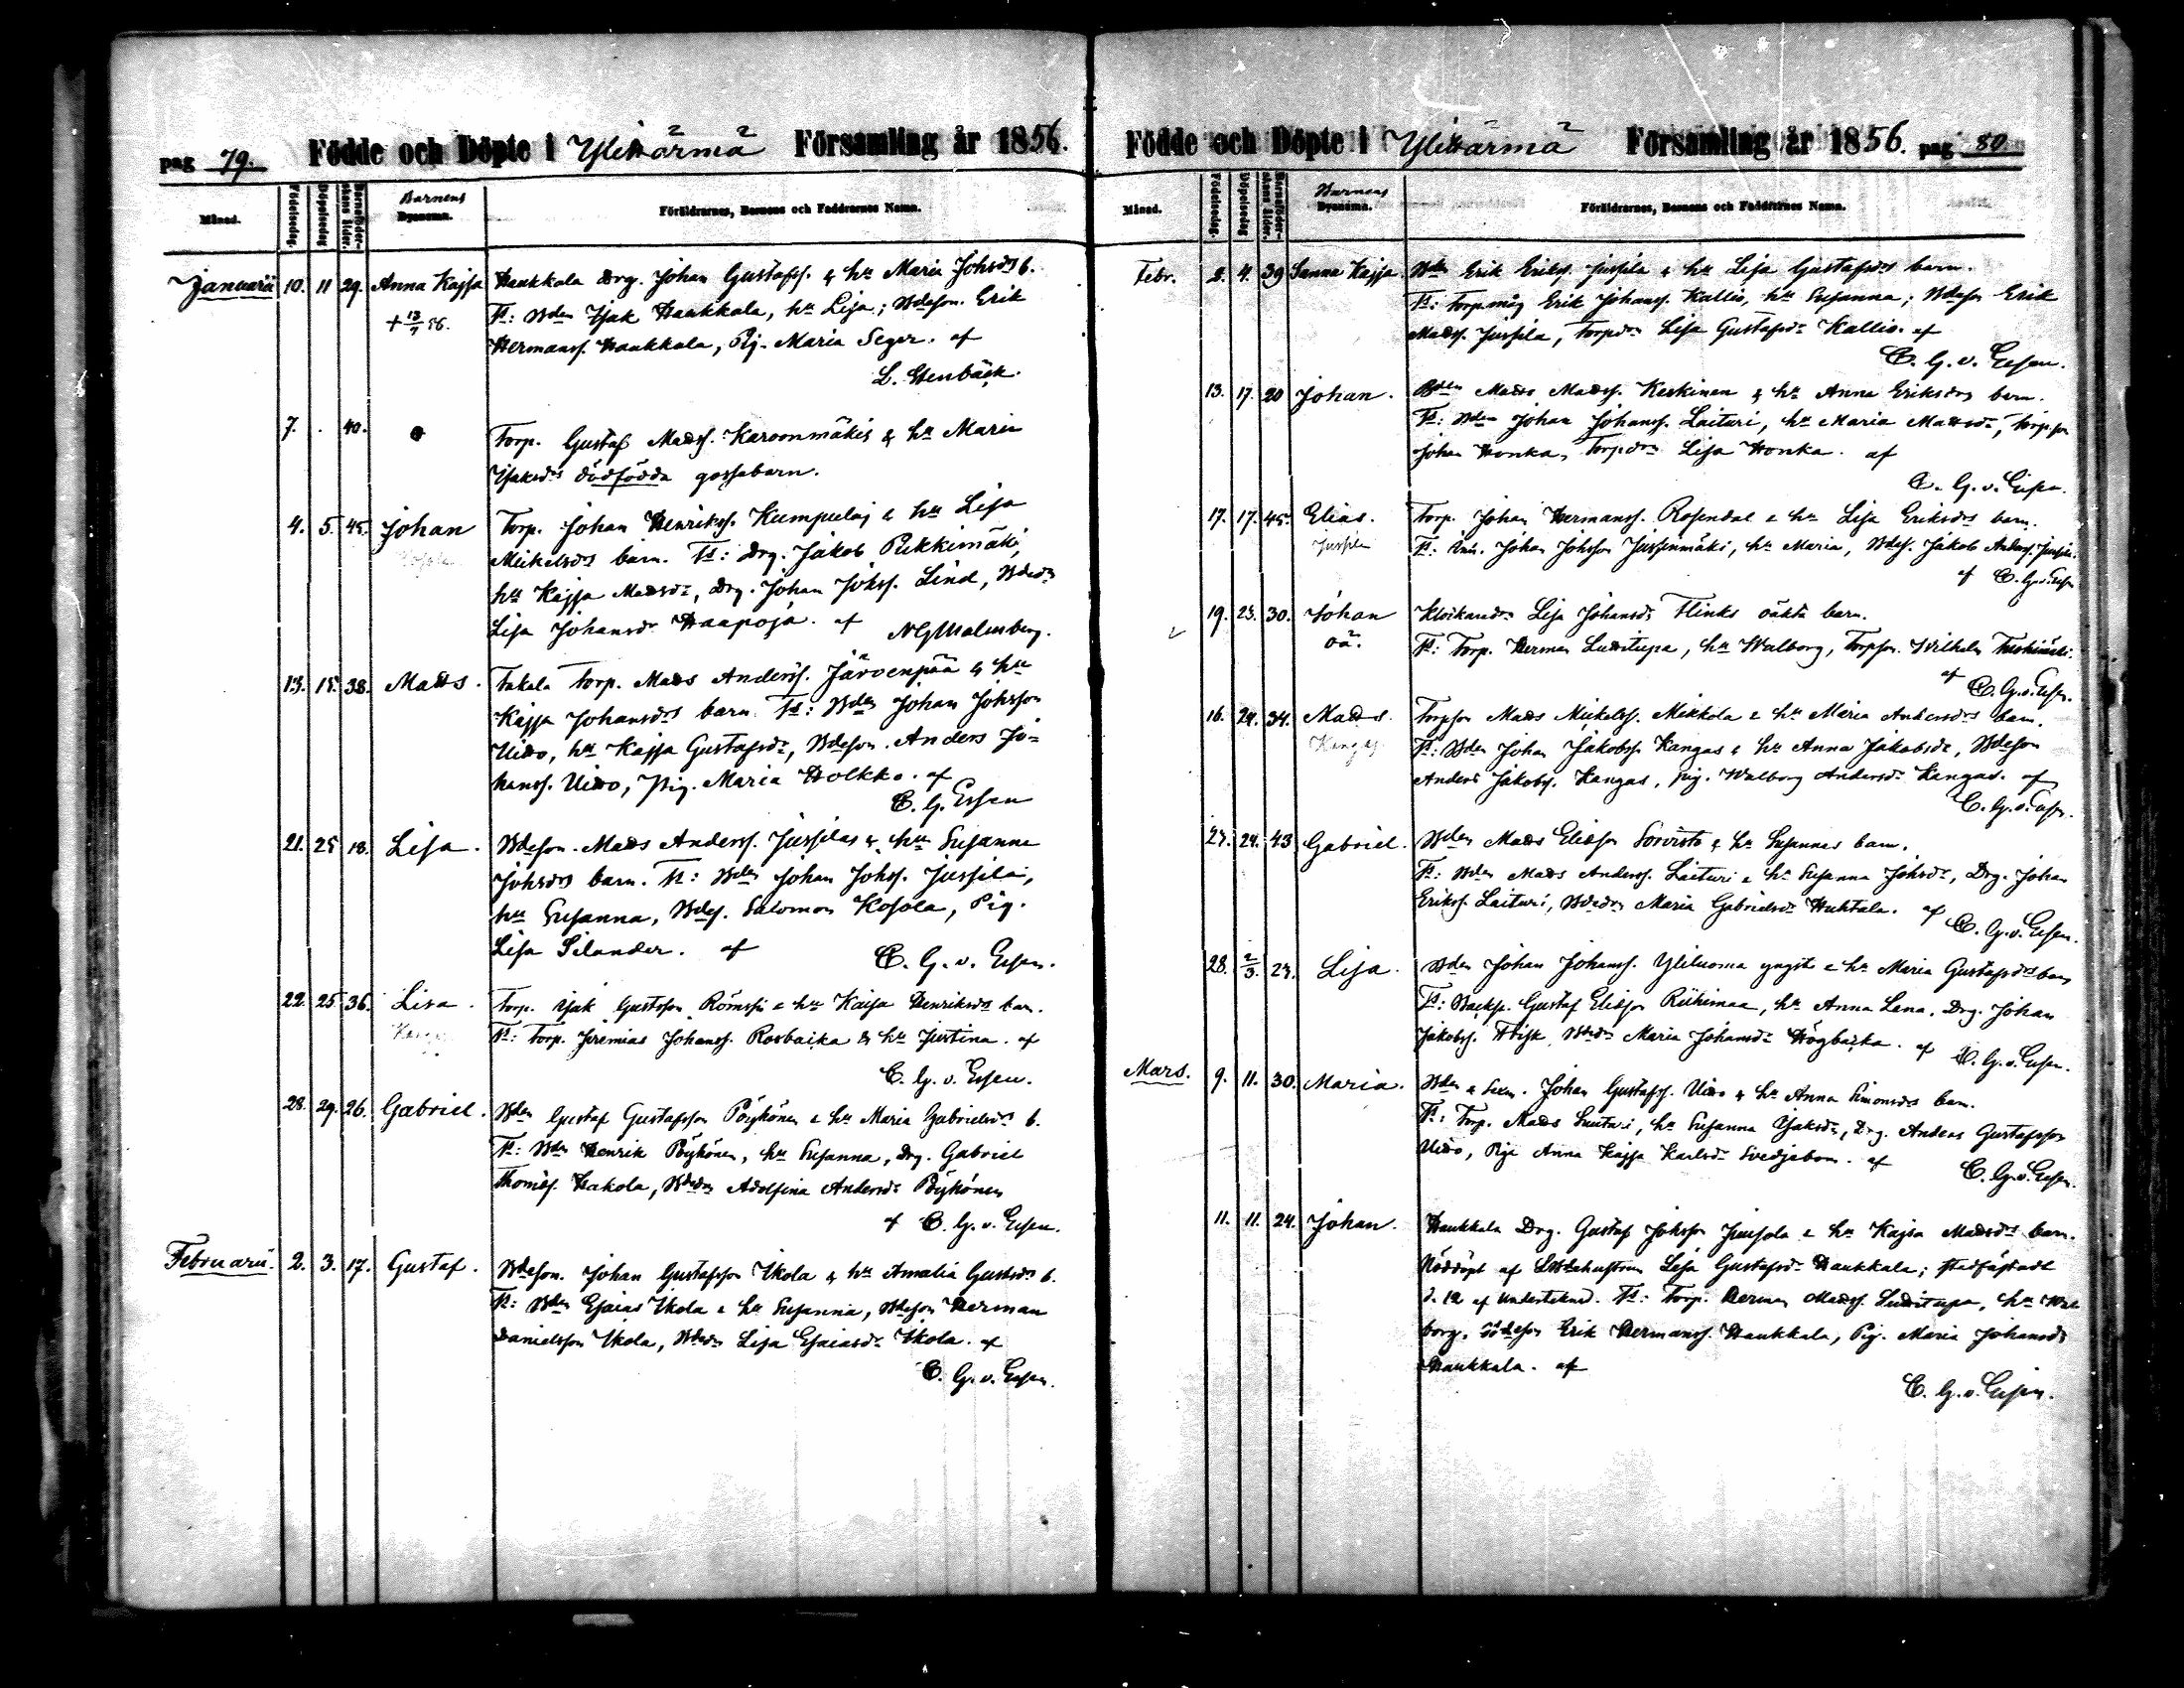 pag 79. Födde och Döpte i Ylikärmä Församling år 1856.
Månad. Födelsedag. Döpelsedag Barnaföderskans ålder. Barnens Dynamn. Föräldrarnes, Barnens och Faddrarnes Namn.
Januarii 10. 11 29. Anna Kajsa Haukkala Drg. Johan Gustafss. & hu Maria Johsdrs b.
+ 13/7 56. Ft: Bden Isak Haukkala, hu Lisa; Bdeson. Erik
Hermanss. Haukkala, Pig. Maria Seger. af
L. Stenbäck.
7. . 40. Torp. Gustaf Madss. Karoonmäkis & hu Maria
Isaksdrs dödfödda gossebarn.
4. 5. 45. Johan Torp. Johan Henrikss. Kumpulas & hu Lisa
Mickelsdrs barn. Ft: Drg. Jakob Pukkimäki,
hu Kajsa Madsdr, Drg. Johan Johss. Lind, Bdedr
Lisa Johansdr Haapoja. af NGMalmberg.
13. 15. 38. Mads. Takala Torp. Mads Anderss. Järvenpää & hu
Kajsa Johansdrs barn. Ft: Bden Johan Johsson
Uitto, hu Kajsa Gustafsdr, Bdeson. Anders Jo=
hanss. Uitto, Pig. Maria Holkko. af
C. G. Essen
21. 25 18. Lisa. Bdeson. Mads Anderss. Jussilas & hu Susanna
Johsdrs barn. Ft: Bden Johan Johss. Jussila,
hu Susanna, Bdes. Salomon Kosola, Pig.
Lisa Silander. af C. G. v. Essen.
22. 25 36. Lisa. Torp. Isak Gustafson & hu Kaisa Henriksdrs bar.
Kangas Ft: Torp. Jeremias Johanss. Rosbacka & hu Justina. af
C. G. v. Essen.
28. 29. 26. Gabriel. Bden Gustaf Gustafsson Pöyhönen & hu Maria Gabrielsdrs b.
Ft: Bden Henrik Pöyhönen, hu Susanna, Drg. Gabriel
Thomas. Hakola, Bdedr Adolfina Andersdr Pöyhönen
af C. G. v. Essen.
Februarii. 2. 3. 17. Gustaf. Bdeson. Johan Gustafsson Ikola & hu Amalia Gustsdrs b.
Ft: Bden Esaias Ikola & hu Susanna, Bdeson Herman
Danielsson Ikola, Bdedr Lisa Esaiasdr Ikola. af
C. G. v. Essen.
Födde och Döpte i Ylikärmä Församling år 1856. pag 80.
Månad. Födelsedag. Döpelsedag Barnaföderskans ålder. Barnens Dynamn. Föräldrarnes, Barnens och Faddrarnes Namn.
Febr. 2. 4. 39 Sanna Kajsa. Bden Erik Erikss. Jussila & hu Lisa Gustafsdrs barn.
Ft: Torp.måg Erik Johanss. Kallio, hu Susanna; Bdeson Erik
Madss. Jussila, Torpdr Lisa Gustafsdr Kallio. af
C. G. v. Essen.
13. 17. 20 Johan. Bden Mads Madss. Keskinen & hu Anna Eriksdrs barn.
Ft: Bden Johan Johanss. Laituri, hu Maria Madsdr, Torp.son
Johan Honka, Torpdr Lisa Honka. af
C. G. v. Essen.
17. 17. 45. Elias. Torp. Johan Hermanss. Rosendal & hu Lisa Eriksdrs barn.
Jussila Ft: Johan Johsson Jussinmäki, hu Maria, Bdes. Jakob Anderss. Jussila.
af C. G. v. Essen
19. 23. 30. Johan Klockaredr Lisa Johansdr Flinks oäkta barn.
oä. Ft: Torp. Herman Luditupa, hu Walborg, Torpson. Wilhelm
af C. G. v. Essen.
16. 24. 34. Mads. Torpson Mads Mickelss. Mikkola & hu Maria Andersdrs barn.
Kangas Ft: Bden Johan Jakobss. Kangas & hu Anna Jakobsdr, Bdeson
Anders Jakobss. Kangas, pig. Walborg Andersdr Kangas. af
C. G. v. Essen.
23. 24. 43 Gabriel. Bden Mads Eliasson Sorvisto & hu Susannas barn.
Ft: Bden Mads Anderss. Laituri & hu Susanna Johsdr, Drg. Johan
Erikss. Laituri, Bdedr Maria Gabrielsdr Huhtala. af C. G. v. Essen.
28. 2/3. 23. Lisa. Bden Johan Johanss. Yliluoma yngste & hu Maria Gustafsdrs barn
Ft: Gustaf Eliasson Riihimaa, hu Anna Lena, Drg. Johan
Jakobss. Bdedr Maria Johansdr Högbacka. af C. G. v. Essen.
Mars. 9. 11. 30. Maria. Bden & Sexm. Johan Gustafss. Uitto & hu Anna Simonsdrs barn.
Ft: Torp. Mads hu Susanna Isaksdr, Drg. Anders Gustafsson
Uitto, Piga Anna Kajsa Karlsdr Svedjebom. af C. G. v. Essen.
11. 11. 24. Johan. Haukkala Drg. Gustaf Johsson & hu Kajsa Madsdrs barn.
Nöddöpt af Lisa Gustafsdr Haukkala; stadfästadt
d. 12 af Undertecknad. Ft: Torp. Herman Madss. Luditupa, hu Wal
borg, Bdeson Erik Hermanss. Haukkala, Pig. Maria Johansdr
Haukkala. af
C. G. v. Essen.